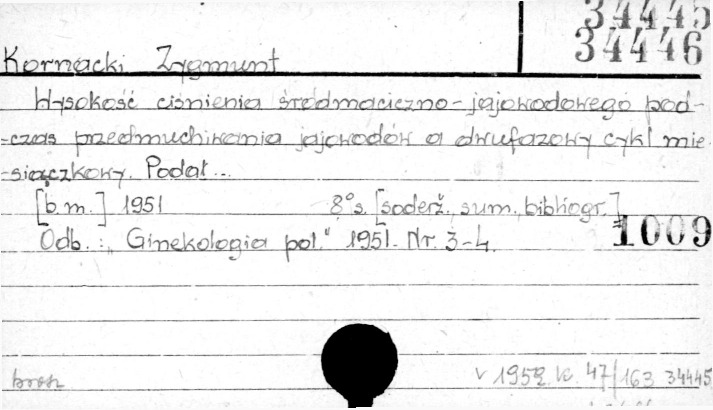 34445
34446
Kornacki Zygmunt
Wysokość ciśnienia śródmaciczno-jajowodowego pod-
-czas przedmuchiwania jajowodów a dwufazowy cykl mie
-siączkowy. Podał...
[b.m.] 1951 8° s. [soderž., sum., bibliogr.]
Odb.: „Ginekologia pol." 1951. Nr. 3-4.
1009
brosz
1952 47/163 34445